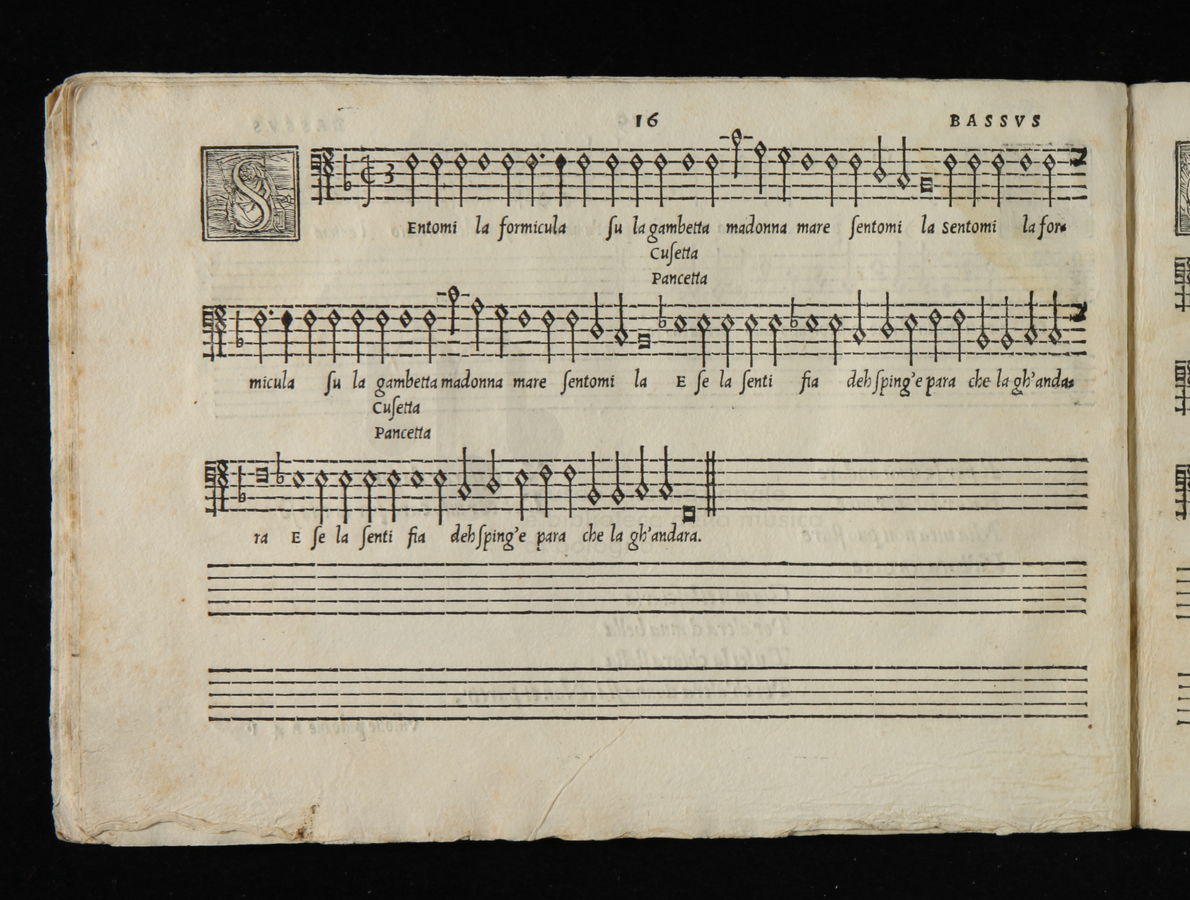 16 BASSVS
SEntomi la formicula ſu la gambetta madonna mare ſentomi la Sentomi la for-
Cuſetta
Pancetta
micula ſu la gambetta madonna mare ſentomi la E ſe la ſenti fia deh ſping'e para che la gh'anda-
Cuſetta
Pancetta
ra E ſe la ſenti fia deh ſping'e para che la gh'andara.